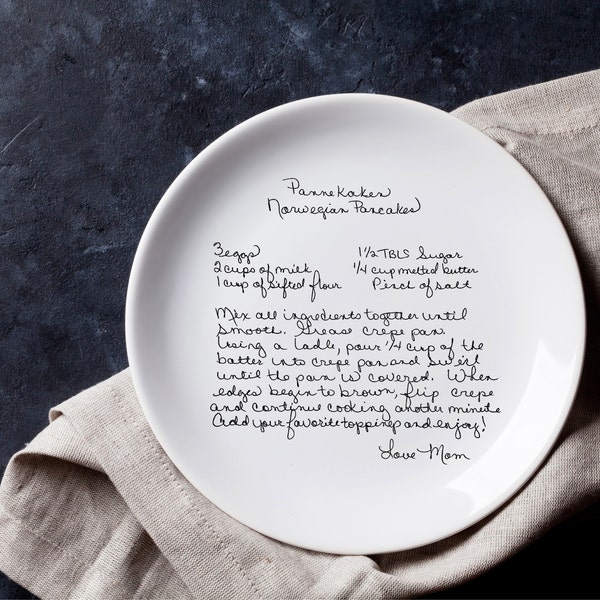 Pannekaken
Norwegian Pancakes
3 eggs
2 cups of milk
1 cup of sifted flour
1½ TBLS Sugar
¼ cup melted butter
Pinch of salt
Mix all ingredients together until
smooth. Grease crepe pan.
Using a ladle, pour ¼ cup of the
batter into crepe pan and swirl
until the pan is covered. When
edges begin to brown, flip crepe
and continue cooking another minute
Add your favorite toppings and enjoy!
Love Mom